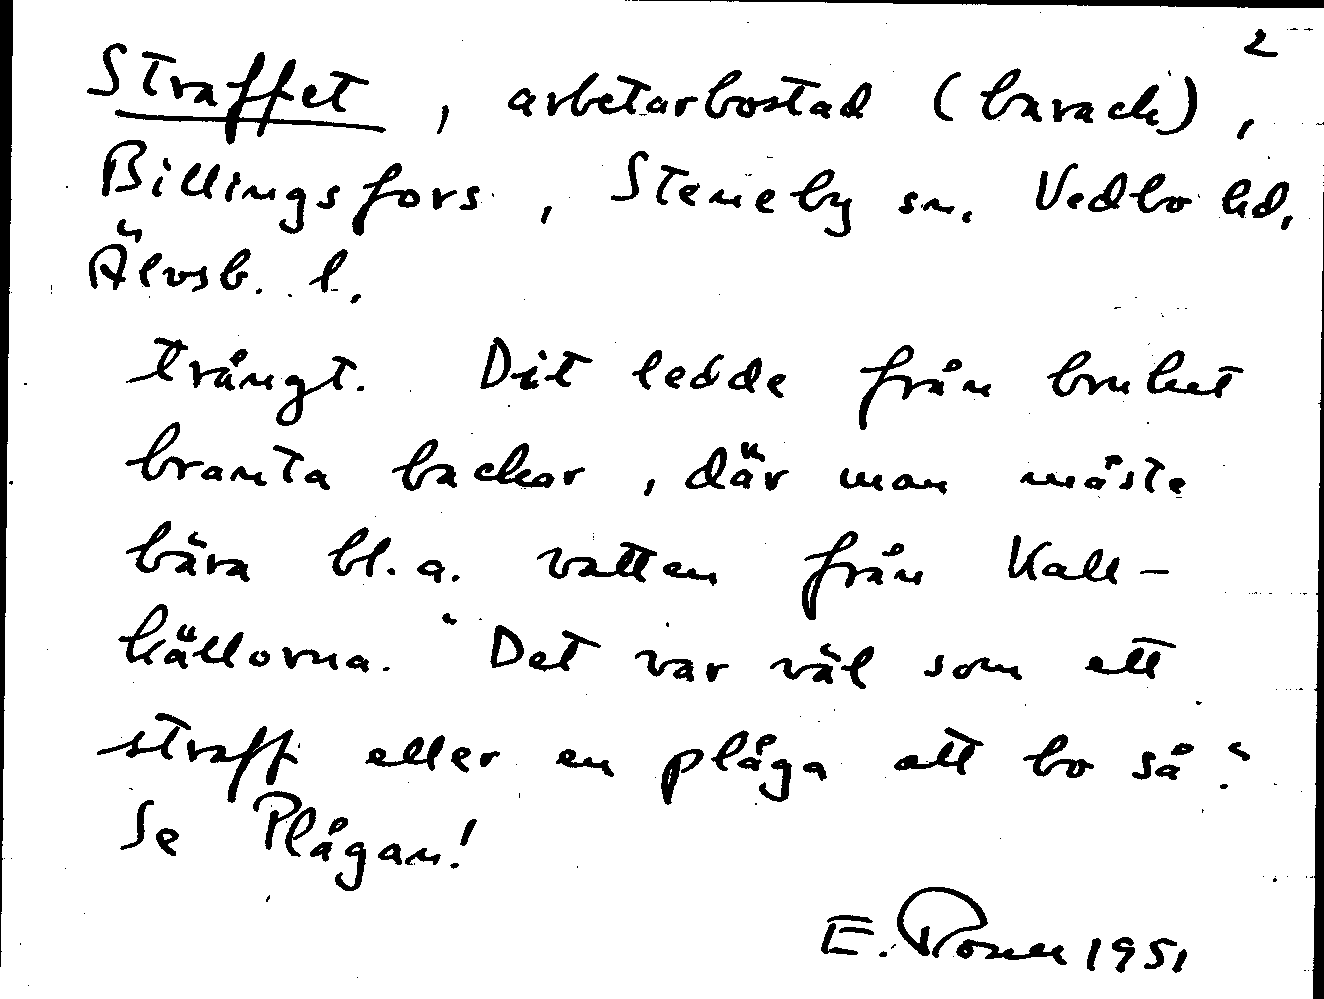 2
Straffet, arbetarbostad (barack),
Billingsfors, Steneby sn. Vedbo hd,
Älvsb. l.
trångt. Dit ledde från bruket
branta backar, där man måste
bära bl.a. vatten från Kall-
källorna. "Det var väl som ett
straff eller en plåga att bo så".
Se Plågan!
E. 1951